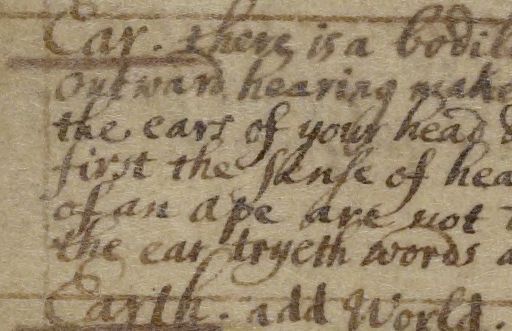 Ear. there is a bodil
outward hearing make
the ears of your head
first the sense of hea
of an ape are not
the ear tryeth words a
Earth. add World.